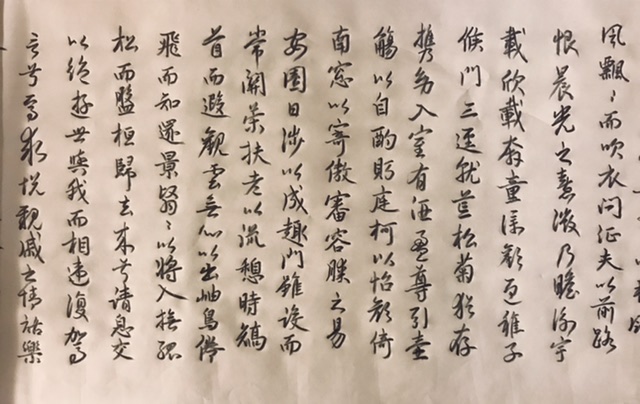 風飄〻而吹衣問征夫以前路
恨晨光之熹微乃瞻衡宇
載欣載奔童僕歡迎稚子
候門三逕就荒松菊猶存
攜幼入室有酒盈尊引壺
觴以自酌眄庭柯以怡顏倚
南窓以寄傲審容膝之易
安園日涉以成趣門雖設而
常關策扶老以流憩時矯
首而遐觀雲無心以出岫鳥倦
飛而知還景翳〻以將入撫孤
松而盤桓歸去來兮請息交
以絕遊世與我而相違復駕
言兮焉求悅親戚之情話樂